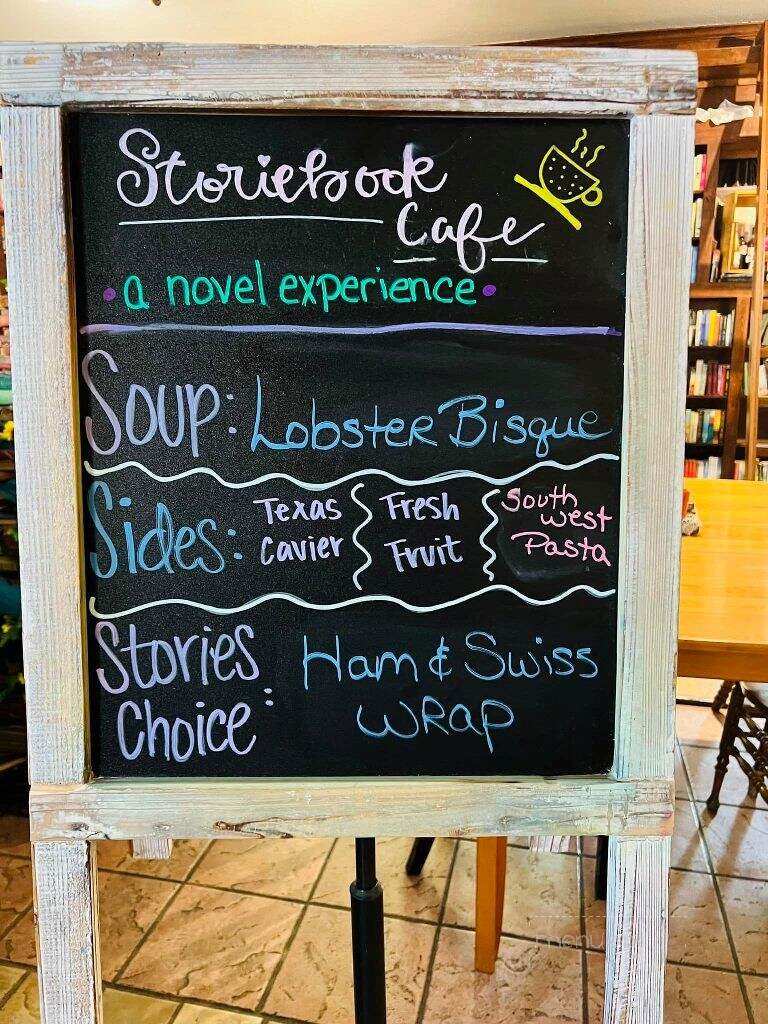 Storiebook
Cafe
• a novel experience •
Soup: Lobster Bisque
Sides: Texas Cavier Fresh Fruit South west Pasta
Stories Choice: Ham & Swiss Wrap
menu